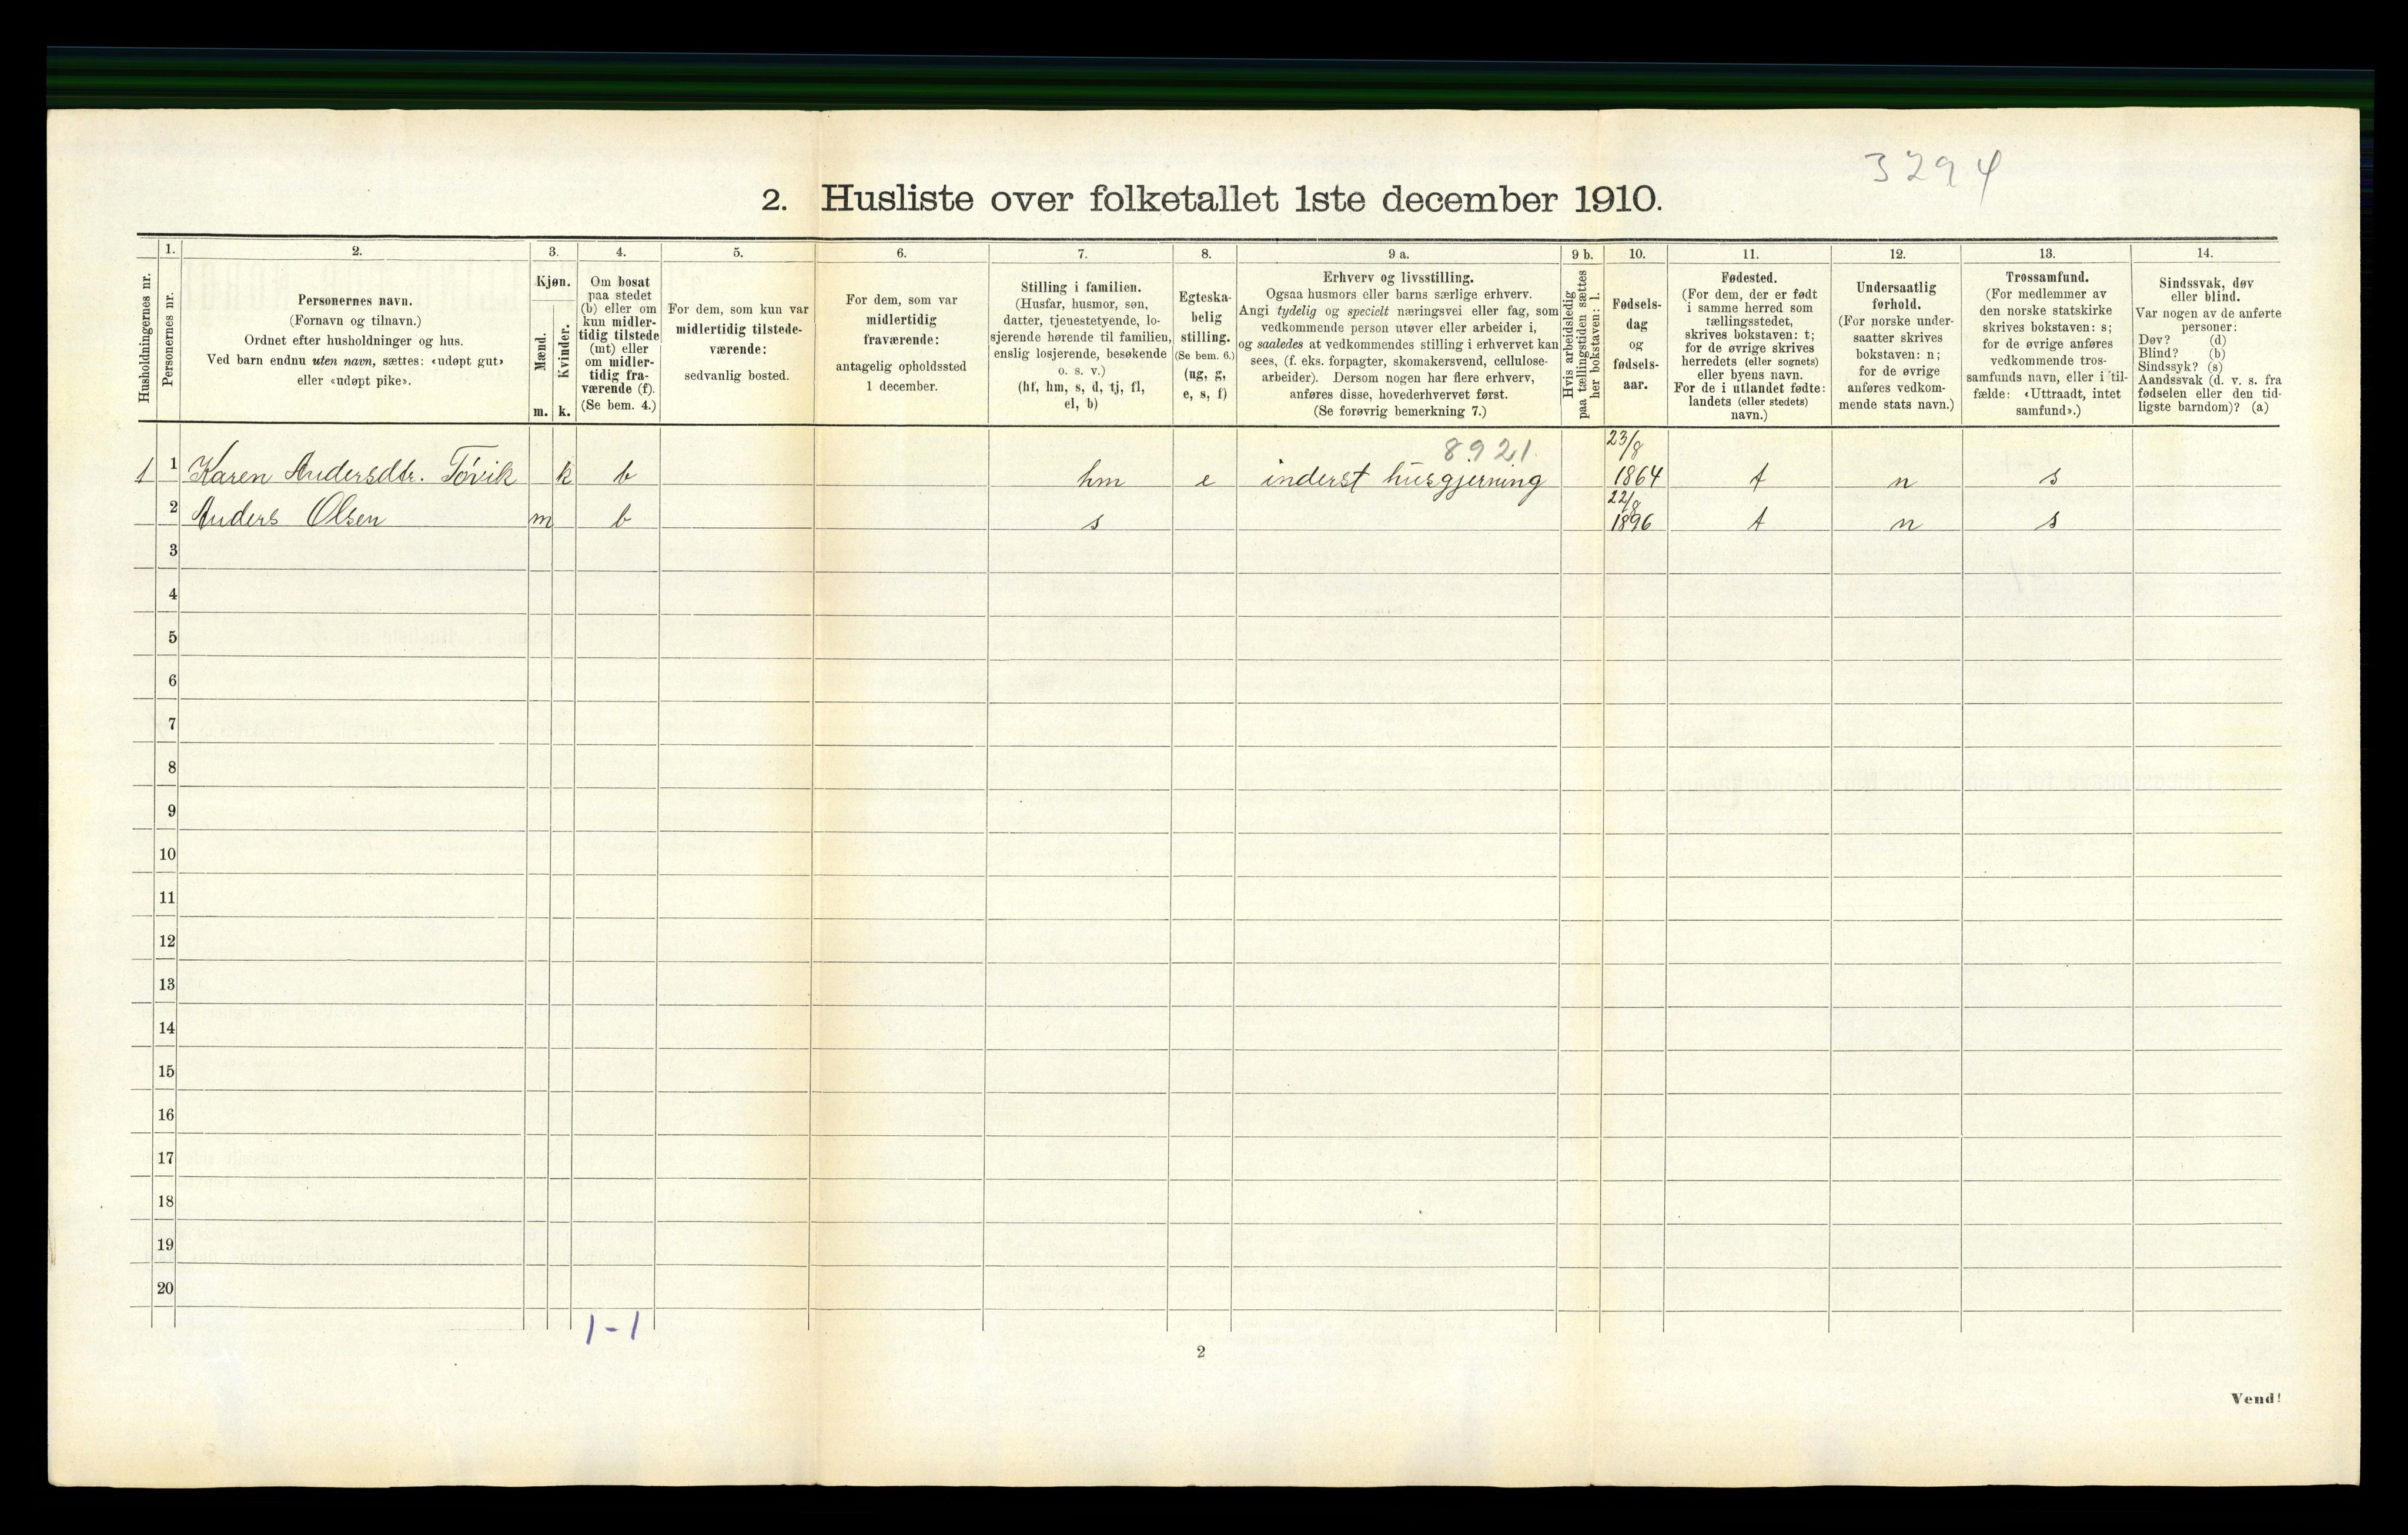 3294
2. Husliste over folketallet 1ste december 1910.
Husholdningernes nr.
1.
Personernes nr.
2.
Personernes navn.
(Fornavn og tilnavn.)
Ordnet efter husholdninger og hus.
Ved barn endnu uten navn, sættes: «udøpt gut»
eller «udøpt pike».
3.
Kjøn.
Mænd.
Kvinder.
m. k.
4.
Om bosat
paa stedet
(b) eller om
kun midler-
tidig tilstede
(mt) eller
om midler-
tidig fra-
værende (f).
(Se bem. 4.)
5.
For dem, som kun var
midlertidig tilstede-
værende:
sedvanlig bosted.
6.
For dem, som var
midlertidig
fraværende:
antagelig opholdssted
1 december.
7.
Stilling i familien.
(Husfar, husmor, søn,
datter, tjenestetyende, lo-
sjerende hørende til familien,
enslig losjerende, besøkende
o. s. v.)
(hf, hm, s, d, tj, fl,
el, b)
8.
Egteska-
belig
stilling.
(Se bem. 6.)
(ug, g,
e, s, f)
9 a.
Erhverv og livsstilling.
Ogsaa husmors eller barns særlige erhverv.
Angi tydelig og specielt næringsvei eller fag, som
vedkommende person utøver eller arbeider i,
og saaledes at vedkommendes stilling i erhvervet kan
sees, (f. eks. forpagter, skomakersvend, cellulose-
arbeider). Dersom nogen har flere erhverv,
anføres disse, hovederhvervet først.
(Se forøvrig bemerkning 7.)
9 b.
Hvis arbeidsledig
paa tællingstiden sættes
her bokstaven: l.
10.
Fødsels-
dag
og
fødsels-
aar.
11.
Fødested.
(For dem, der er født
i samme herred som
tællingsstedet,
skrives bokstaven: t;
for de øvrige skrives
herredets (eller sognets)
eller byens navn.
For de i utlandet fødte:
landets (eller stedets)
navn.)
12.
Undersaatlig
forhold.
(For norske under-
saatter skrives
bokstaven: n;
for de øvrige
anføres vedkom-
mende stats navn.)
13.
Trossamfund.
(For medlemmer av
den norske statskirke
skrives bokstaven: s;
for de øvrige anføres
vedkommende tros-
samfunds navn, eller i til-
fælde: «Uttraadt, intet
samfund».)
14.
Sindssvak, døv
eller blind.
Var nogen av de anførte
personer:
Døv? (d)
Blind? (b)
Sindssyk? (s)
Aandssvak (d. v. s. fra
fødselen eller den tid-
ligste barndom)? (a)
8921. 23/8
1 1 Karen Andersdtr. Tóvik k b hm e inderst husgjerning 1864 t n s
22/8
2 Anders Olsen m b s 1896 t n s
3
4
5
6
7
8
9
10
11
12
13
14
15
16
17
18
19
20
1-1
2
Vend!